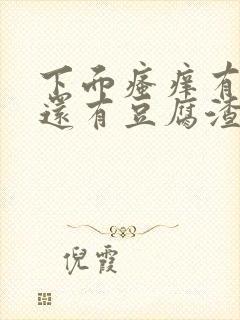 下面瘙痒有
还有豆腐渣
倪霞